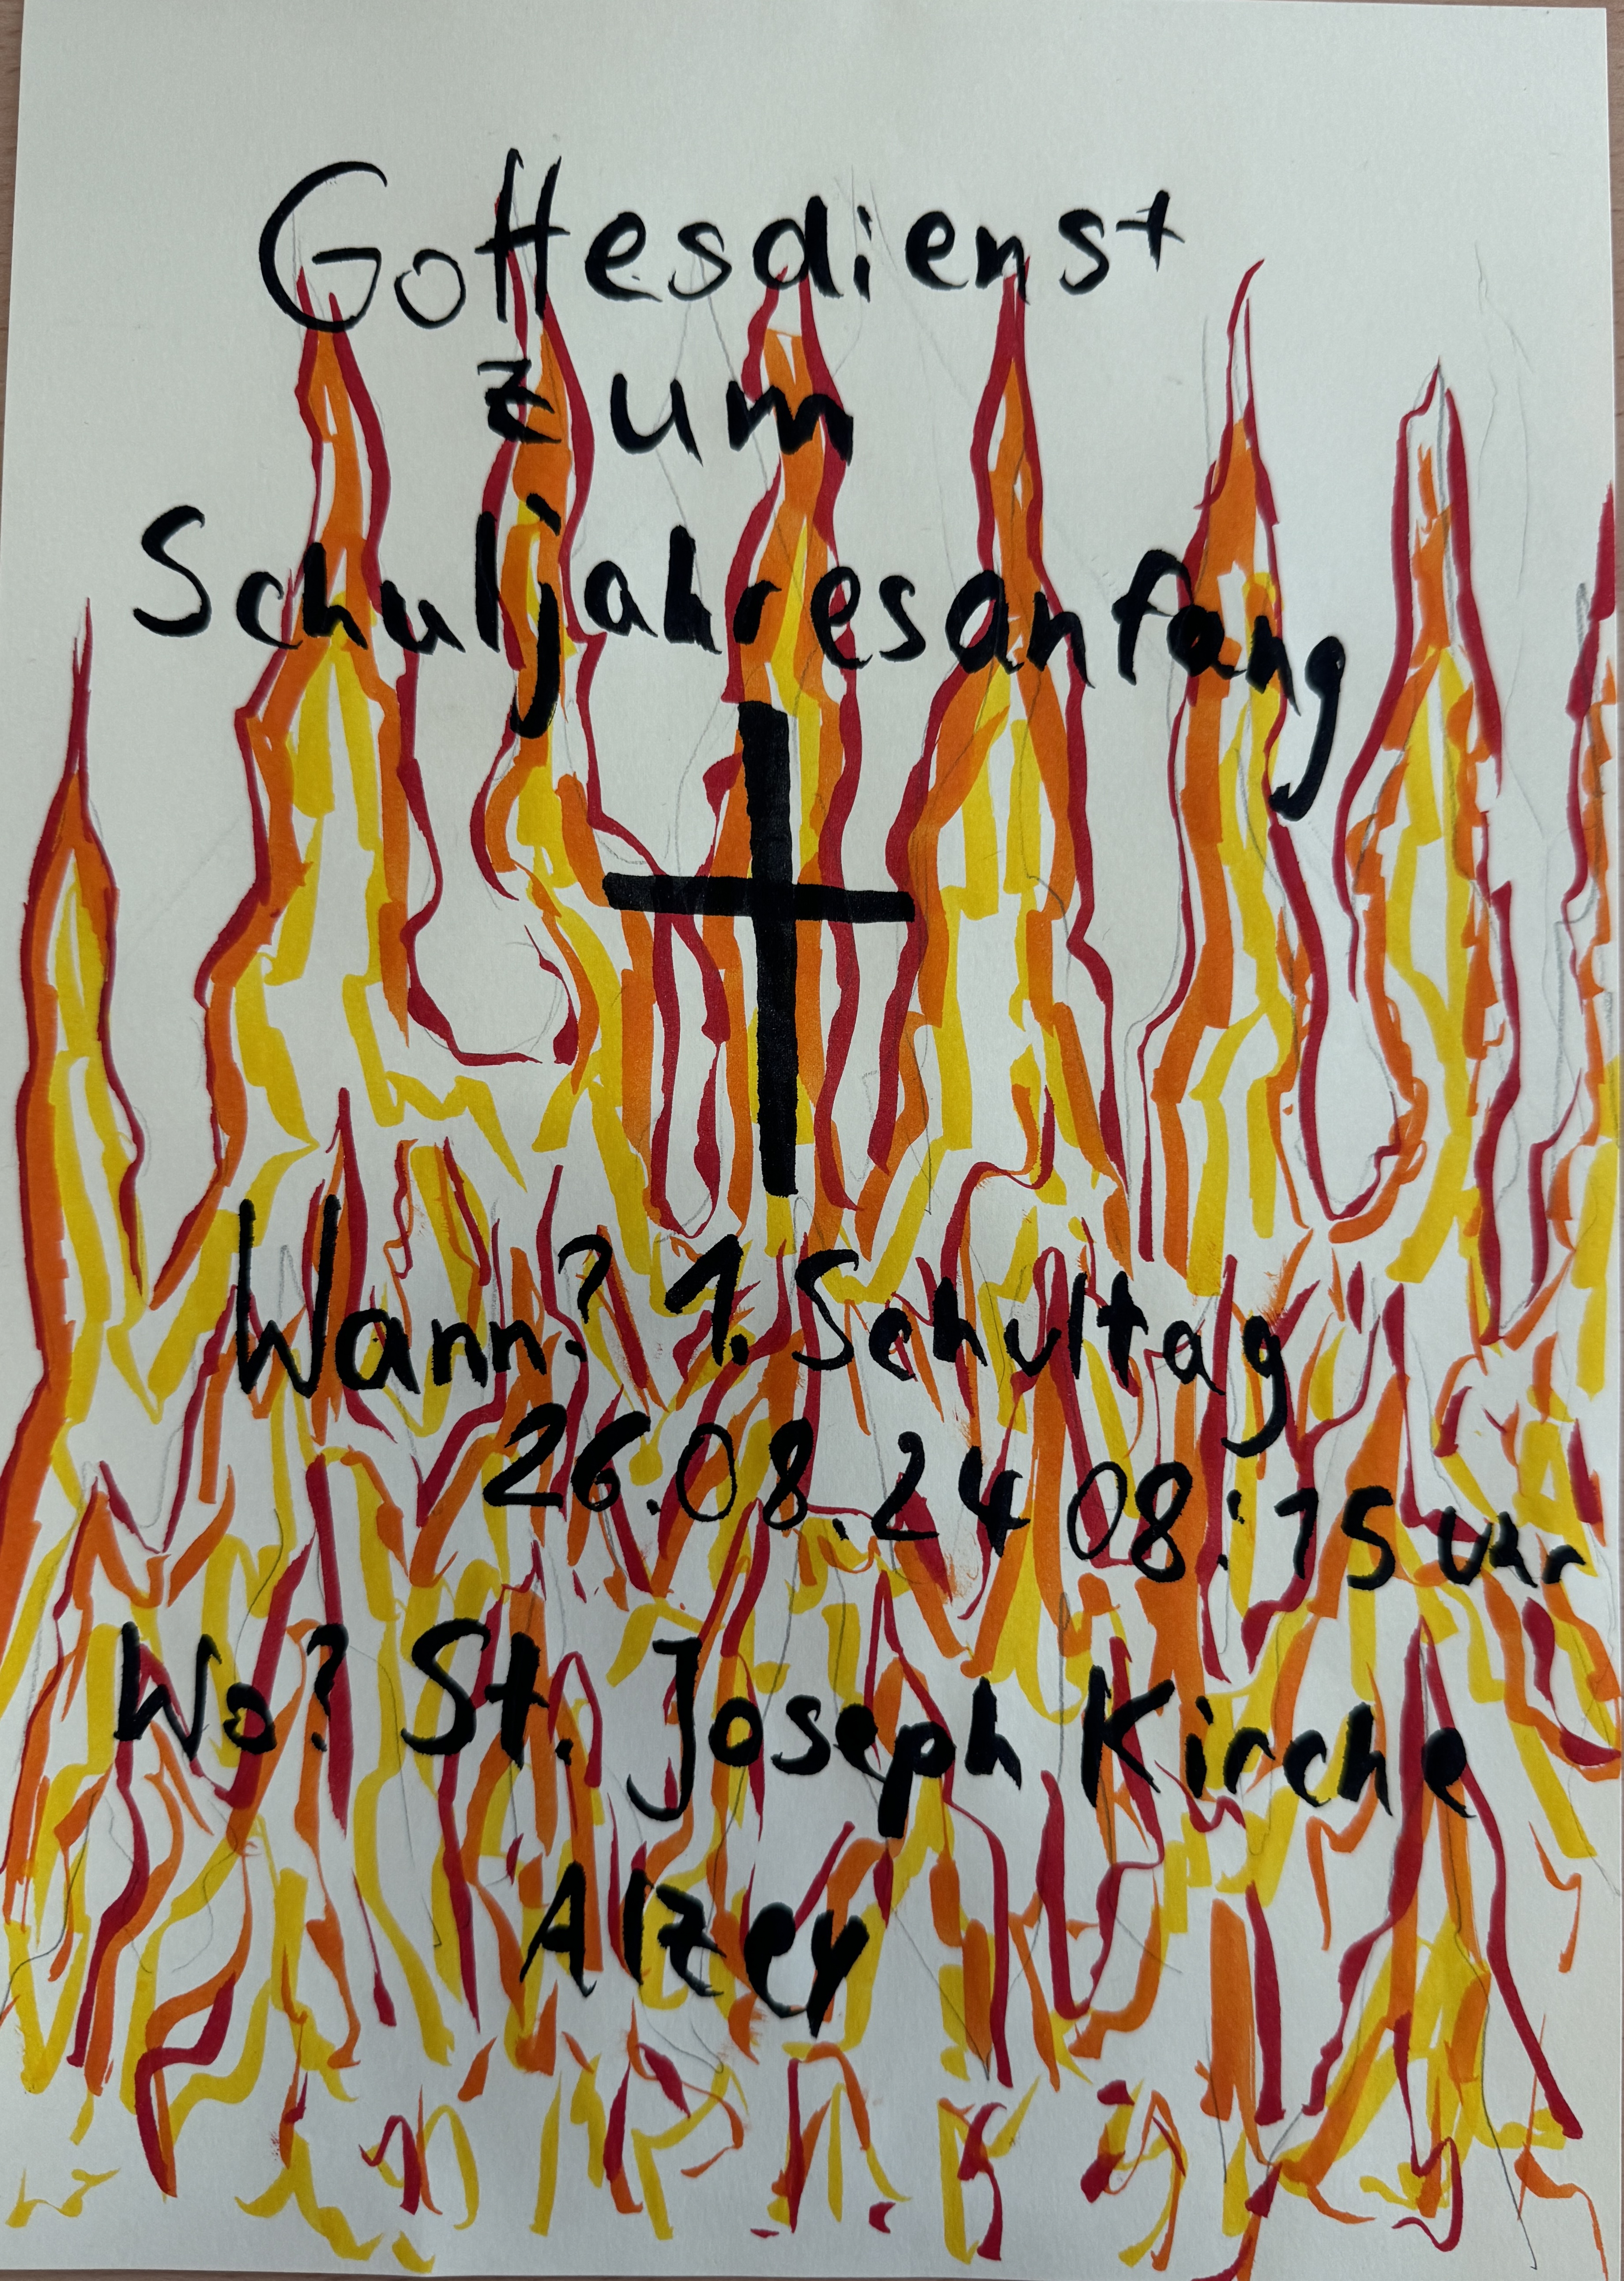 Gottesdienst
zum
Schuljahresanfang
Wann? 1. Schultag
26.08.24 08:15 Uhr
Wo? St. Joseph Kirche
Alzey